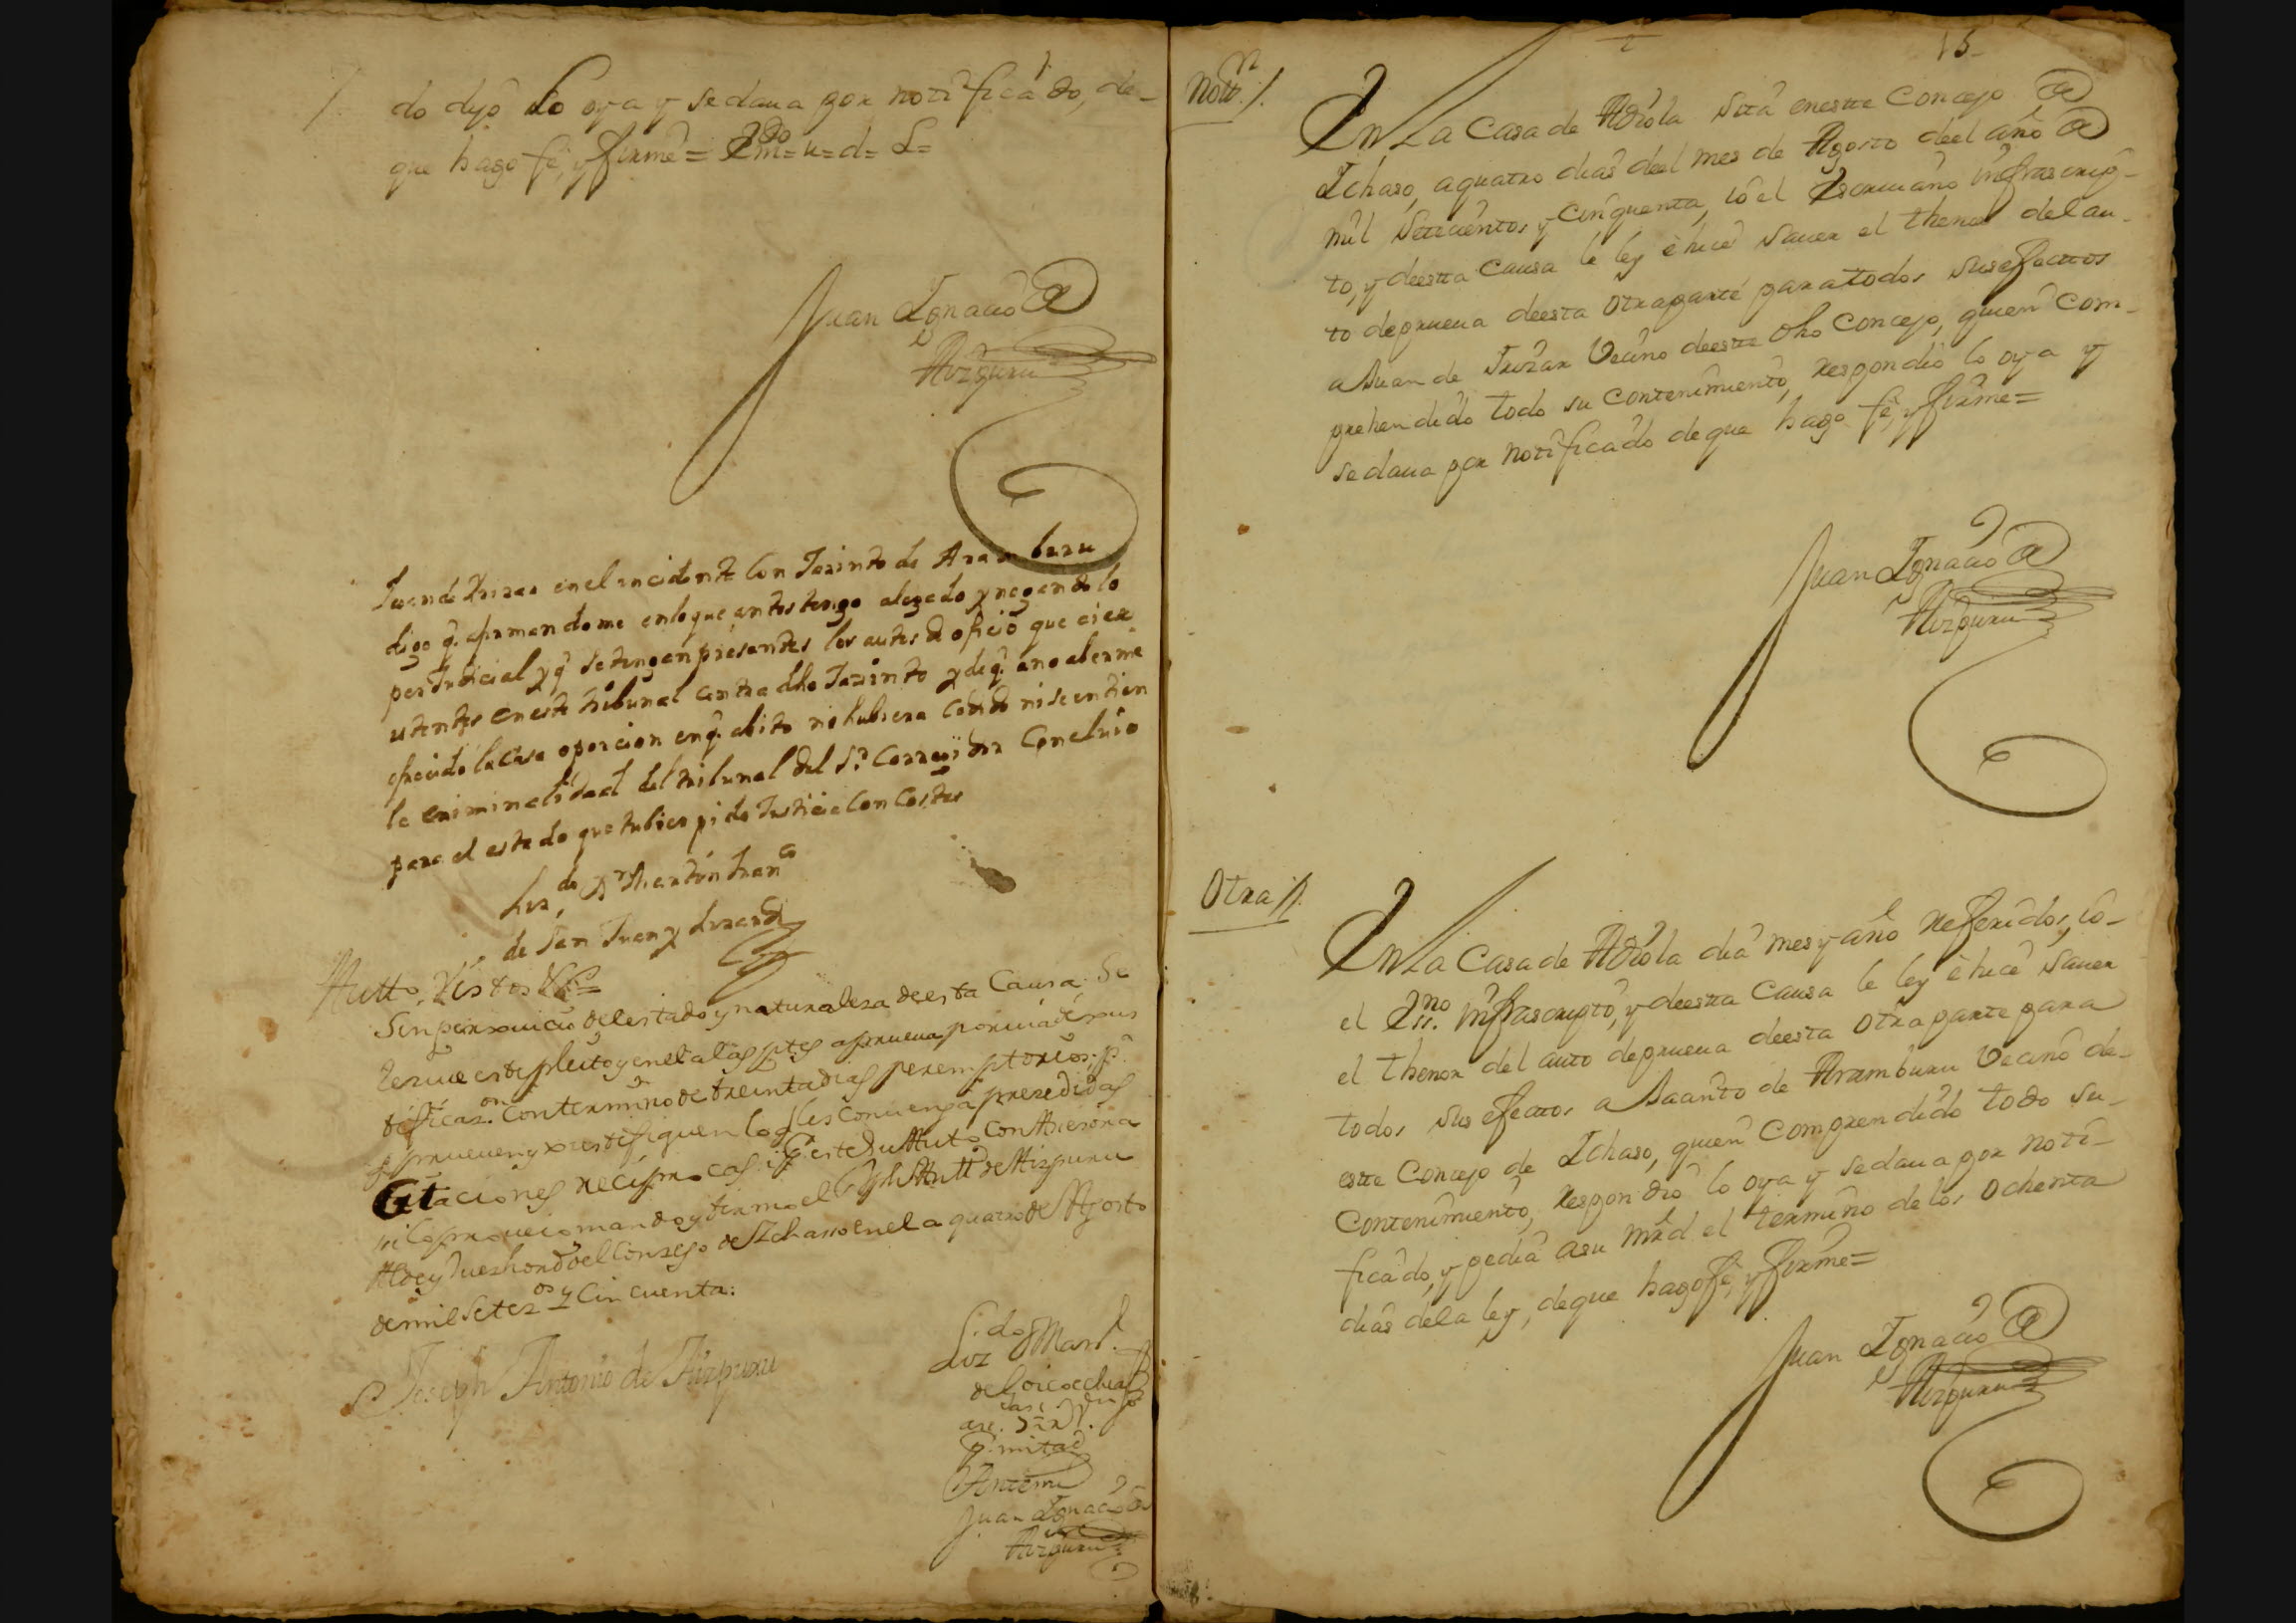 do dijo lo oya y se daua por notificado, de-
que hago fé, y firmé = Em.do = u = d = L =
Juan Ignacio de
Aizpuru
Juan de Irizar en el incidente con Jazinto de Aramburu
digo q. afirmandome en lo que antes tengo alegado y negando lo
perjudicial y q. se tengan presentes los autos de oficio que ai ex
istentes en este tribunal contra dho Jazinto y de q. ano aberme
ofrecido la casa oporcion en q. abito no hubiera cedido ni se entien
la criminalidad del tribunal del S.r Corregidor Concluio
para el estado que tubiere pido Justicia con Costas
Liz.do D.n Martin Fran.co
de San Juan y
Autto, Vistos &.a =
Sin perxuicio del estado y naturaleza de esta Causa; Se
reziue este pleito y en el a las ptes a prueua por uia de xus
tificaz.on con termino de treinta dias peremptorios; p.a
q. prueuen y xustifiquen lo q. les conuenga prezedidas
Citaciones recíprocas; i p.r este su Auto con Asesoria
asi lo proueio mando y firmo el S.r Joseph Antt.o de Aizpuru
Alde y Juez hord.o del Conzejo de Ichaso en el a quatro de Agosto
de mil setez.os y cincuenta:
Joseph Antonio de Aizpuru
Liz.do Mart.
de Goicoechea
p.r mitad
Antemi
Juan Ignacio de
Aizpuru
15
Noto.n //.
En La Casa de Adiola sita en este Concejo de
Ichaso, a quatro dias deel mes de Agosto deel año de
mil setecientos y cinquenta, io el Escriuano infrascrip-
to, y deesta Causa le ley è hicé sauer el thenor del au-
to de prueua deesta otra parte para todos sus efectos
a Juan de Irizar Vecino deeste dho Concejo, quien com-
prehendido todo su contenimiento, respondió lo oya y
se daua por notificado de que hago fé, y firmé =
Juan Ignacio de
Aizpuru
Otra //.
En La Casa de Adiola dia mes y año referidos, io-
el Ess.no infrascripto, y deesta causa le ley è hicé sauer
el thenor del auto de prueua deesta otra parte para
todos sus efectos a Jacinto de Aramburu Vecino de-
este Concejo de Ichaso, quien comprendido todo su-
contenimiento, respondió lo oya y se daua por noti-
ficado, y pedia a su mrd. el termino de los ochenta
dias de la ley, de que hago fé, y firmé =
Juan Ignacio de
Aizpuru